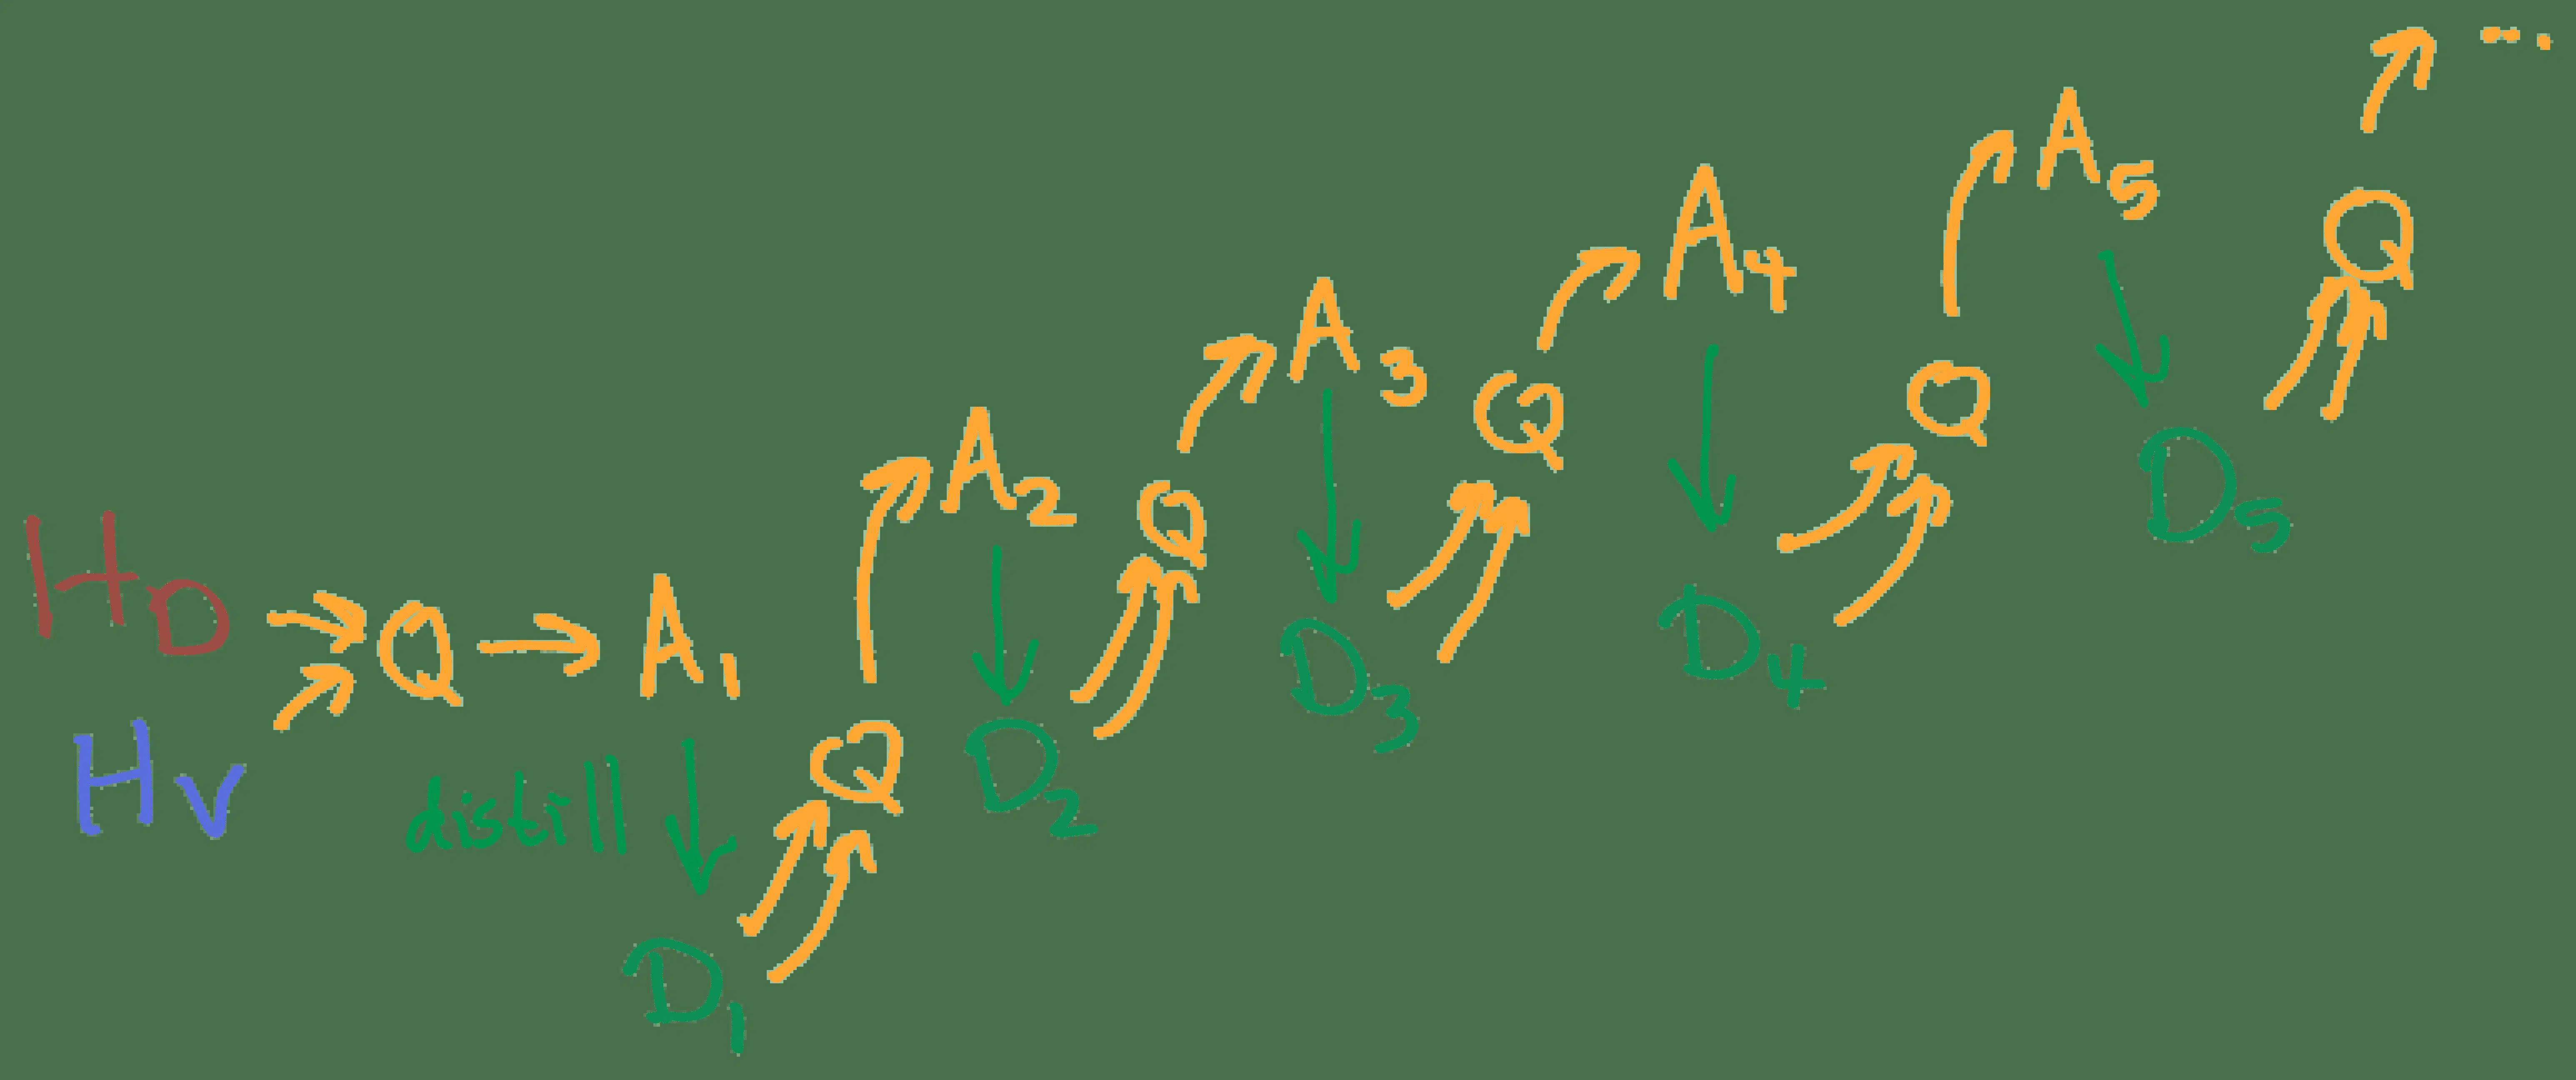 H_D → Q → A_1
H_V
distill
D_1
Q
A_2
D_2
Q
A_3
D_3
Q
A_4
D_4
Q
A_5
D_5
Q
...